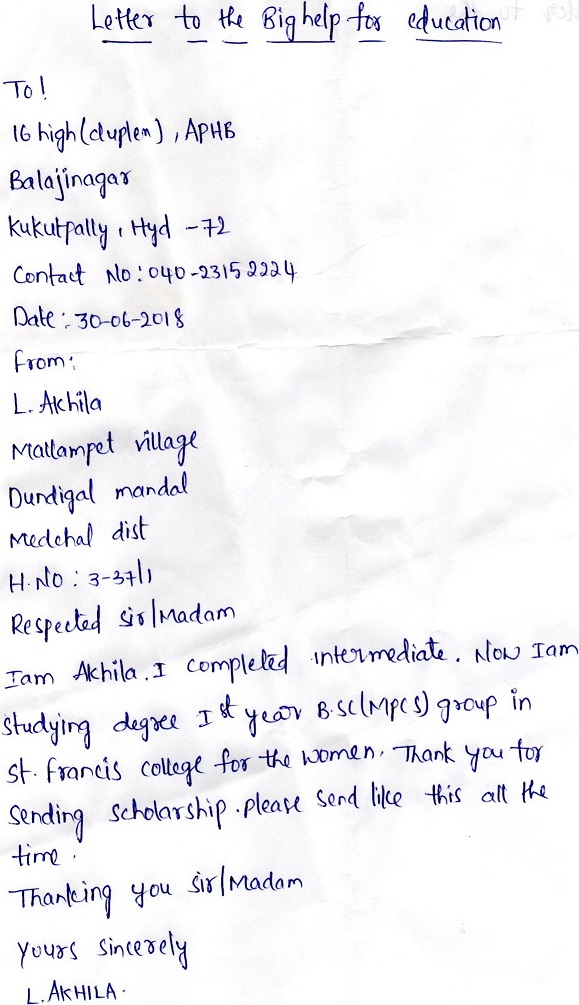 Letter to the Big help for education
To!
16 high (duplen), APHB
Balajinagar
Kukutpally, Hyd - 72
Contact No: 040-2315 2224
Date: 30-06-2018
From:
L. Akhila
Mallampet village
Dundigal mandal
Medchal dist
H.NO: 3-37/1
Respected Sir/Madam
Iam Akhila. I completed intermediate. Now Iam
studying degree Ist year B.SC(MPCS) group in
St. Francis college for the women. Thank you for
sending scholarship. please send like this all the
time.
Thanking you sir/Madam
yours sincerely
L. AKHILA.